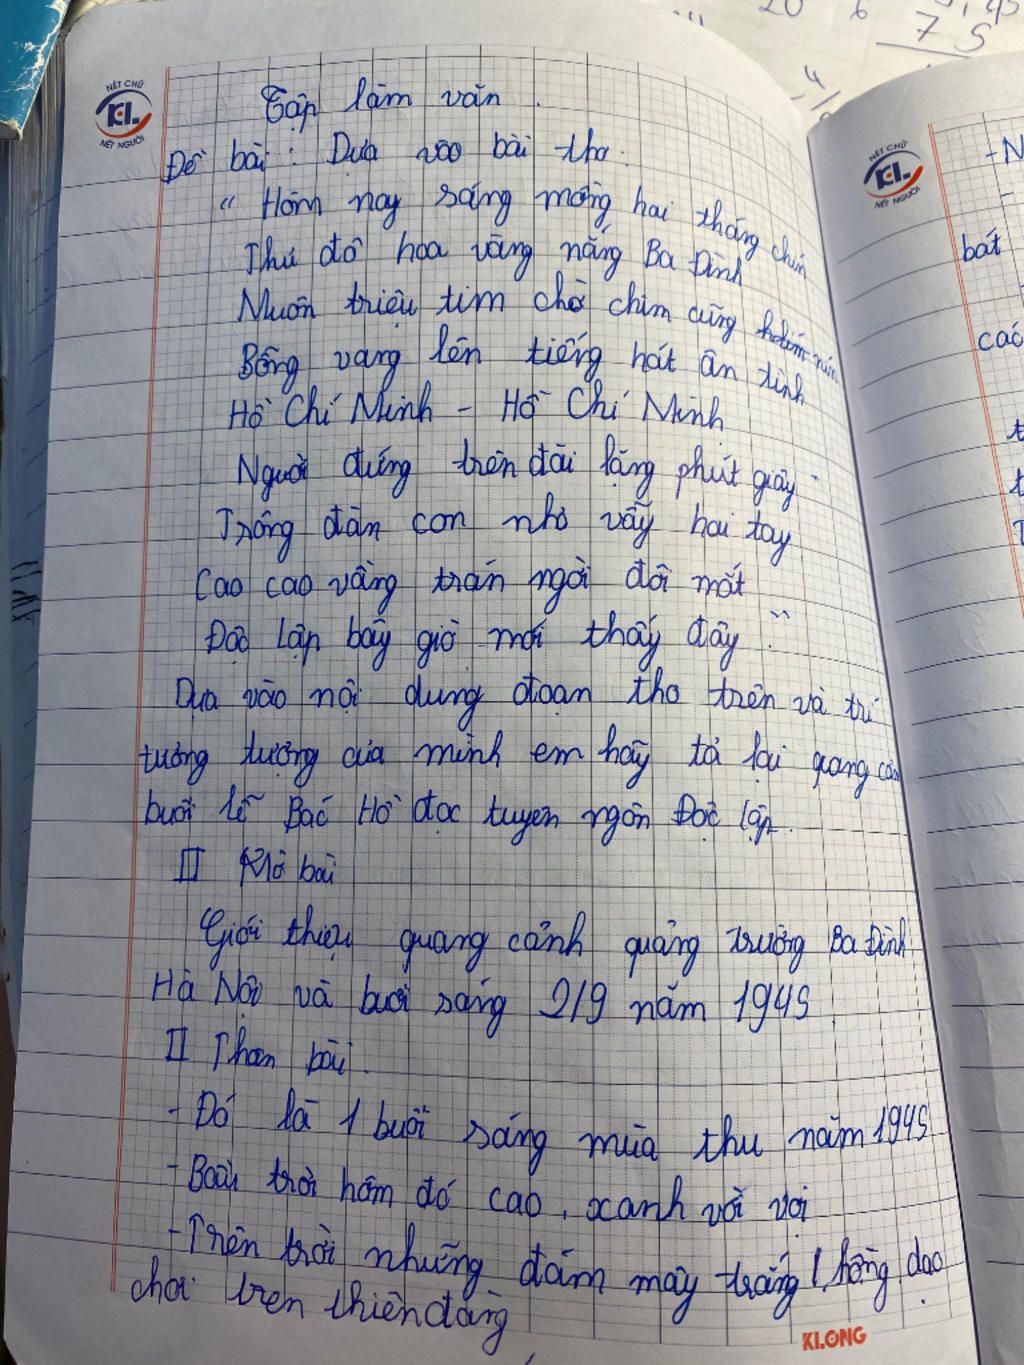 Tập làm văn.
Đề bài: Dựa vào bài thơ:
“ Hôm nay sáng mồng hai tháng chín
Thủ đô hoa vàng nắng Ba Đình
Muôn triệu tim chờ chim cũng nín
Bỗng vang lên tiếng hát ân tình
Hồ Chí Minh - Hồ Chí Minh
Người đứng trên đài lặng phút giây
Trông đàn con nhỏ vẫy hai tay
Cao cao vầng trán ngời đôi mắt
Độc lập bây giờ mới thấy đây ”.
Dựa vào nội dung đoạn thơ trên và trí
tưởng tượng của mình em hãy tả lại quang cảnh
buổi lễ Bác Hồ đọc tuyen ngôn Độc lập.
Mở bài
Giới thiệu quang cảnh quảng trường Ba Đình
Hà Nội và buổi sáng 2/9 năm 1945
II Thân bài.
- Đó là 1 buổi sáng mùa thu năm 1945
- Bầu trời hôm đó cao, xanh vời vợi
- Trên trời những đám mây trắng hồng dạo
chơi tren thiên đàng
NÉT CHỮ
KL
NÉT NGƯỜI
KLONG
NÉT CHỮ
KL
NÉT NGƯỜI
bát
các